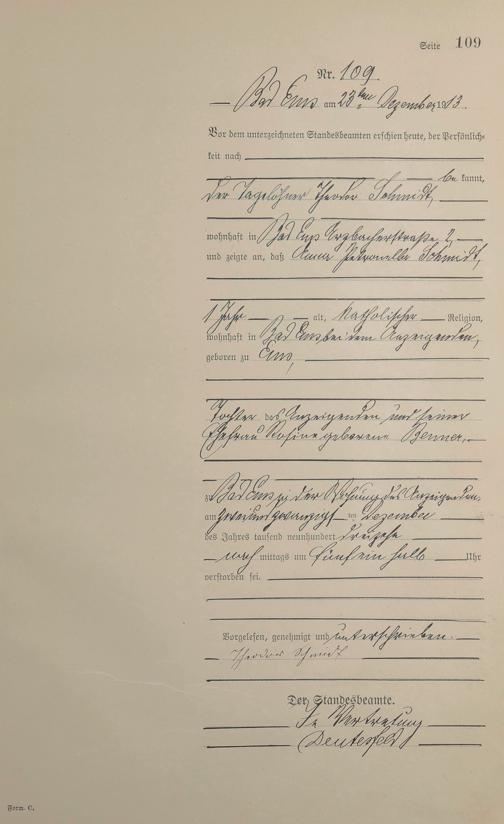 Seite 109
Nr. 109
Bad Ems am 23ten Dezember 1913.
Vor dem unterzeichneten Standesbeamten erschien heute, der Persönlich-
keit nach
bekannt,
der Tagelöhner Theodor Schmidt,
wohnhaft in Bad Ems Arzbacherstraße 2
und zeigte an, daß Anna Petronella Schmidt,
1 Jahr alt, katholischer Religion,
wohnhaft in Bad Ems bei dem Anzeigenden,
geboren zu Ems,
Tochter des Anzeigenden und seiner
Ehefrau Rosine geborene Benner,
zu Bad Ems in der Wohnung des Anzeigenden
am zweiundzwanzigsten Dezember
des Jahres tausend neunhundert dreizehn
nachmittags um fünfeinhalb Uhr
verstorben sei.
Vorgelesen, genehmigt und unterschrieben.
Theodor Schmidt
Der Standesbeamte.
In Vertretung
Form. C.